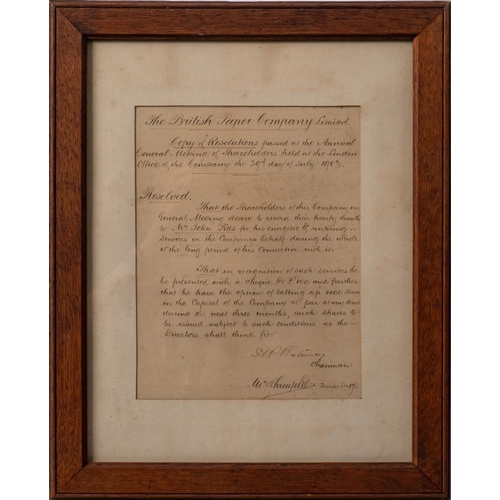 The British Paper Company Limited.
Copy of Resolutions passed at the Annual
General Meeting of Shareholders held at the London
Office of the Company the 29th day of July 1903.
Resolved,
That the Shareholders of this Company in
General Meeting desire to record their hearty thanks
to Mr John for his energetic & untiring
services on the Companys behalf during the whole
of the long period of his connection with it.
That in recognition of such services he
be presented with a cheque for £100 and further
that he have the option of taking up 1000 Shares
in the Capital of the Company at par at any time
during the next three months, such shares to
be issued subject to such conditions as the
Directors shall think fit.
Chairman